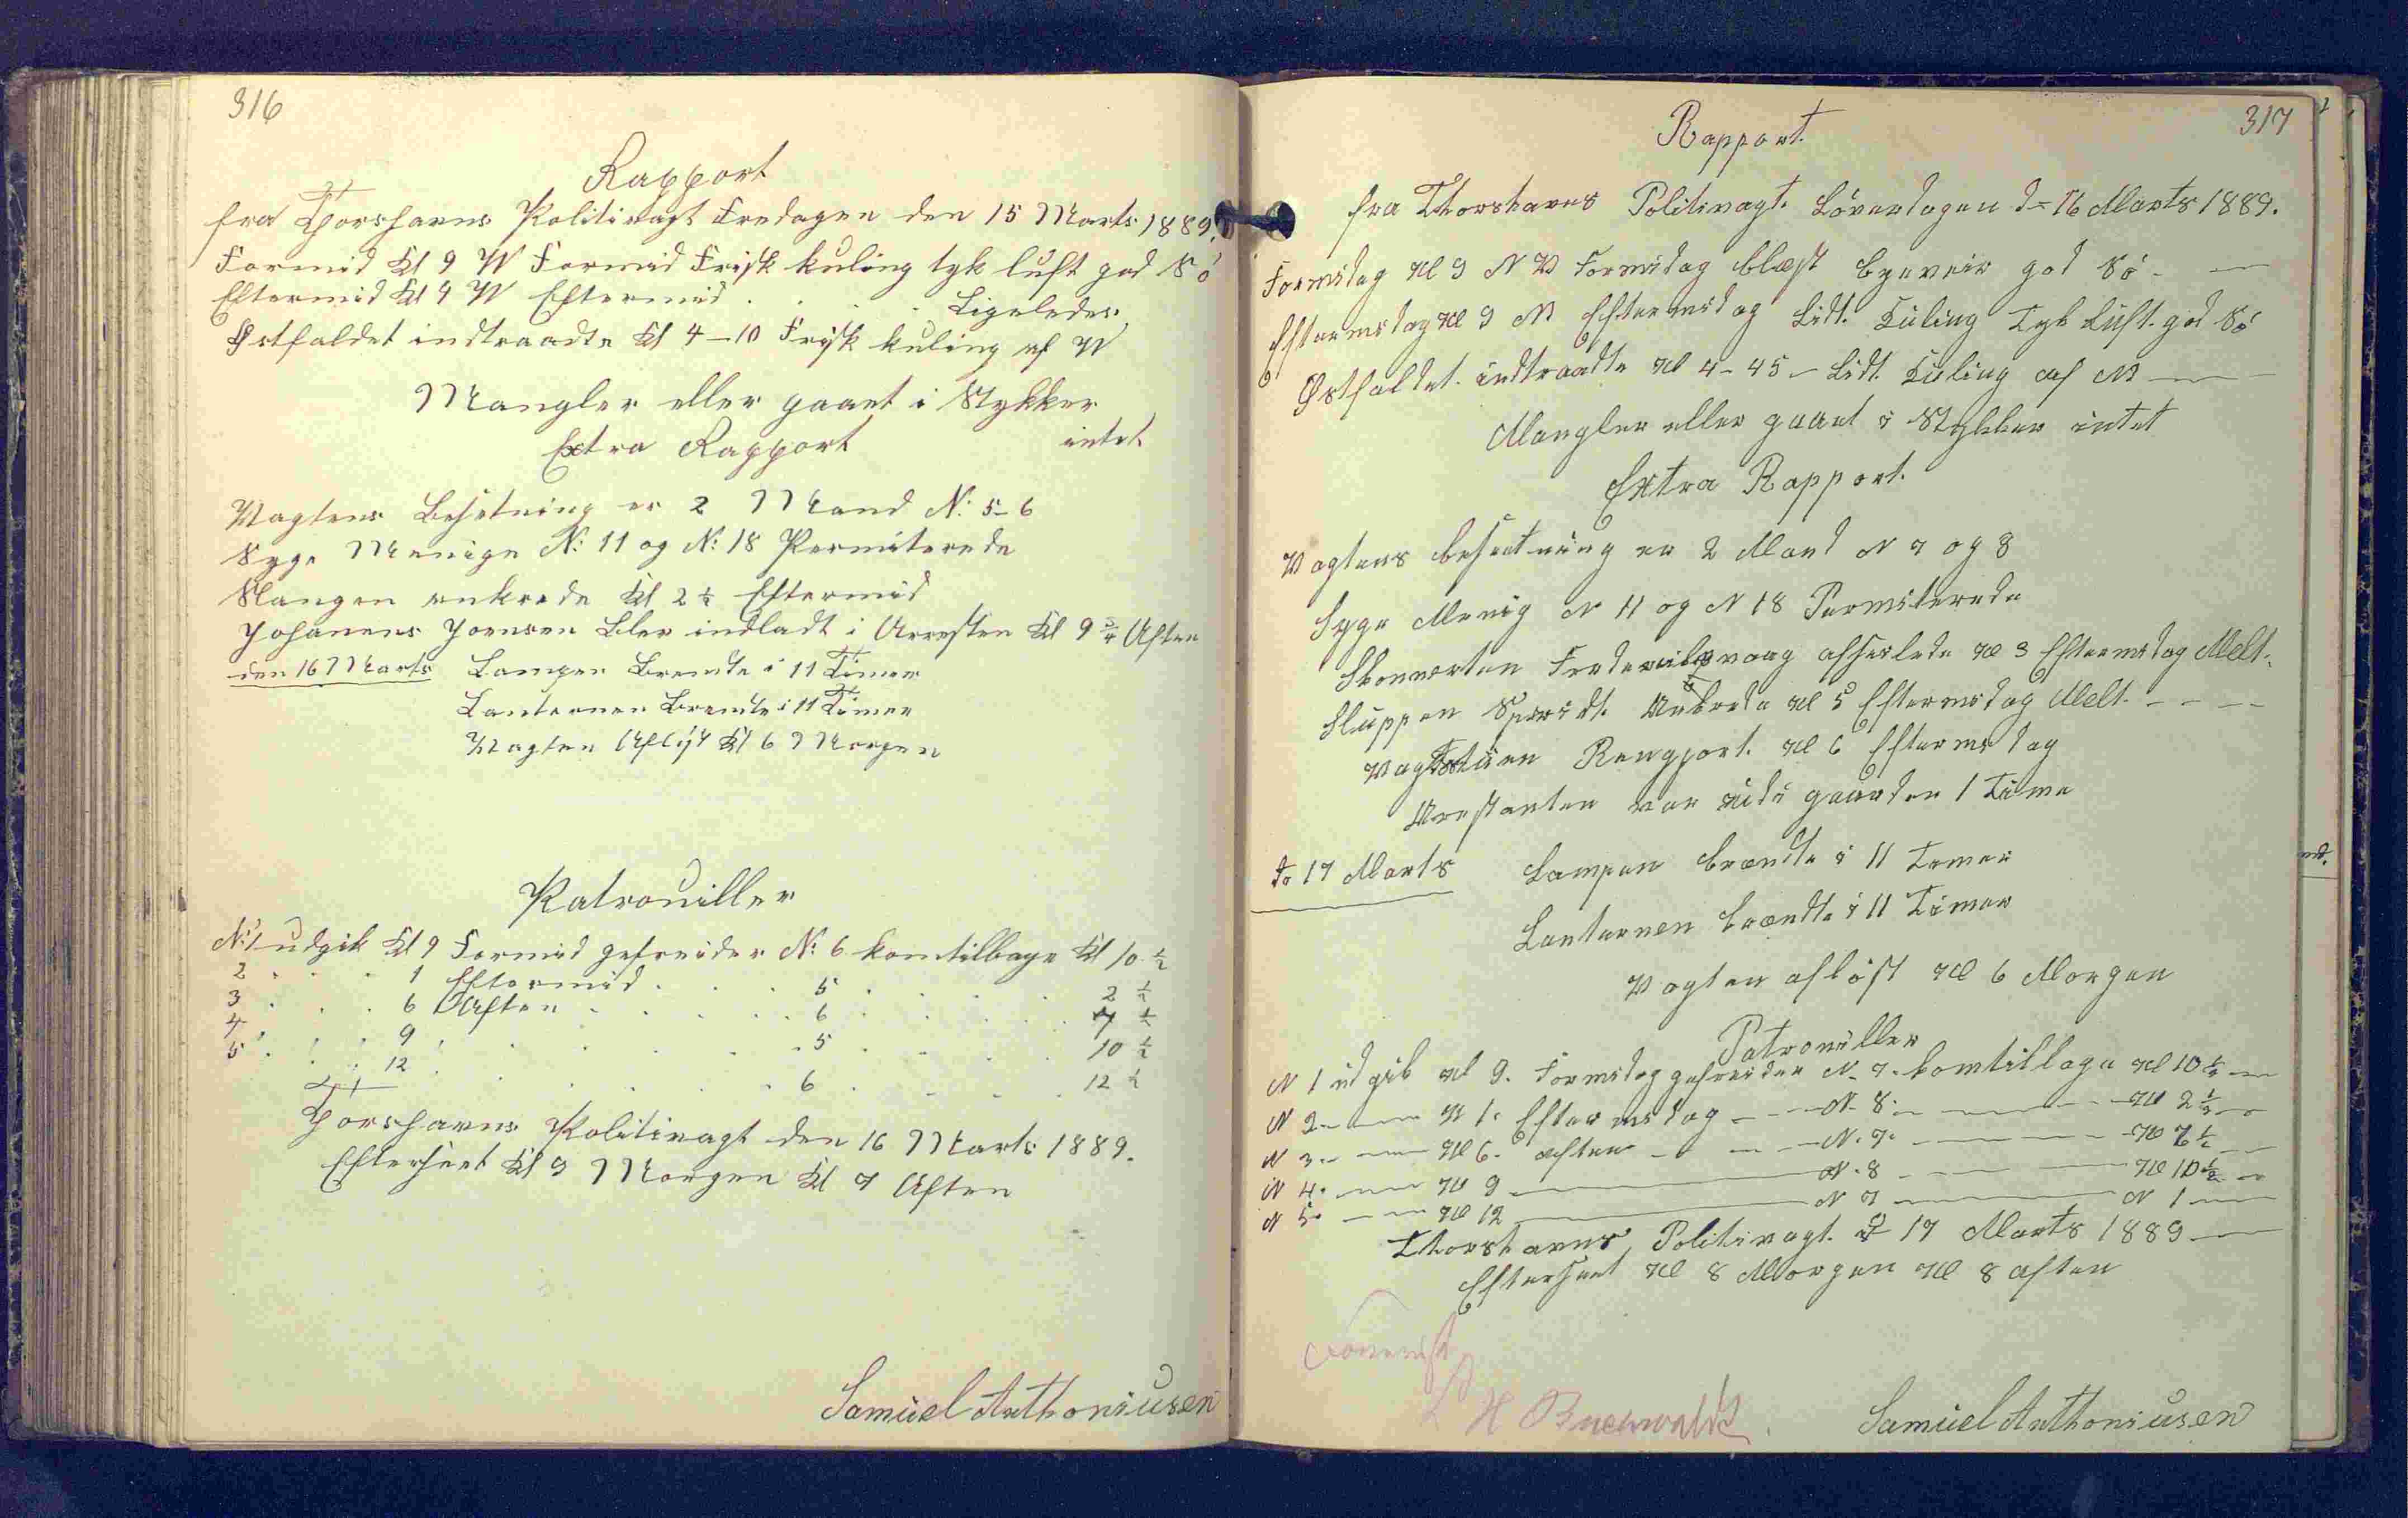 316
Rapport
fra Thorshavns Politivagt Fredagen den 15 Marts 1889.
Formid Kl 9 W Formid Frisk kuling tyk luft god Sö
Eftermid Kl 4 W Eftermid . . . . Ligeledes
Østfaldet indtraadte Kl 4-10 Frisk kuling af W
Mangler eller gaaet i Stykker
intet
Extra Rapport
Vagtens Besetning er 2 Mand N: 5-6
Syge Menige N: 11 og N: 18 Permiterede
ankrede Kl 2 ½ Eftermid
Johannes Joensen Blev indladt i Arresten Kl 9 ¾ Aften
den 16 Marts Lampen Brendte i 11 Timer
Lanternen Brendte i 11 Timer
Vagten Aflöst Kl 6 Morgen
Patrouiller
N: 1 udgik Kl 9 Formid gefreider N: 6 kom tilbage Kl 10 ½
2 . . . 1 Eftermid . . . 5 . . . 2 ½
3 . . . 6 Aften . . . 6 . . . 7 ½
4 . . . 9 . . . 5 . . . 10 ½
5 . . . 12 . . . 6 . . . 12 ½
Thorshavns Politivagt den 16 Marts 1889.
Efterseet Kl 9 Morgen Kl 7 Aften
Samuel Anthoniusen
317
Rapport.
fra Thorshavns Politivagt. Löverdagen d= 16 Marts 1889.
Formidag Kl 9 N V Formidag blæst Byeveir god Sö - —
Eftermidag Kl 9 N Eftermidag Lidt. Kuling Tyk Luft. god Sö
Østfaldet. indtraadte Kl 4-45 - Lidt. Kuling af N —
Mangler eller gaaet i Stykker intet
Extra Rapport.
Vagtens besætning er 2 Mand N 7 og 8
Syge Menig N 11 og N 18 Permiterede
Skonnerten Frederiksvaag afseilede Kl 3 Eftermidag Melt.
Sluppen Ankrede Kl 5 Eftermidag Melt. - - - -
Vagtstuen Rengjort. Kl 6 Eftermidag
Arestanten var ude i gaarden 1 Time
d= 17 Marts Lampen brændte i 11 Timer
Lanternen brændte i 11 Timer
Vagten aflöst Kl 6 Morgen
Patrouiller
N 1 udgik Kl 9. Formidag gefreider N. 7. kom tilbage Kl 10 ½ —
N 2. — Kl 1. Eftermidag - - - N. 8. — Kl 2 ½ —
N 3. — Kl 6. aften - - — N. 7. — Kl 7 ½ —
N 4. — Kl 9 — N. 8 — Kl 10 ½ —
N 5. — Kl 12 — N 7 — N 1 —
Thorshavns Politivagt. d 17 Marts 1889 —
Efterseet Kl 8 Morgen Kl 8 aften
H Buchwaldt.
Samuel Anthoniusen